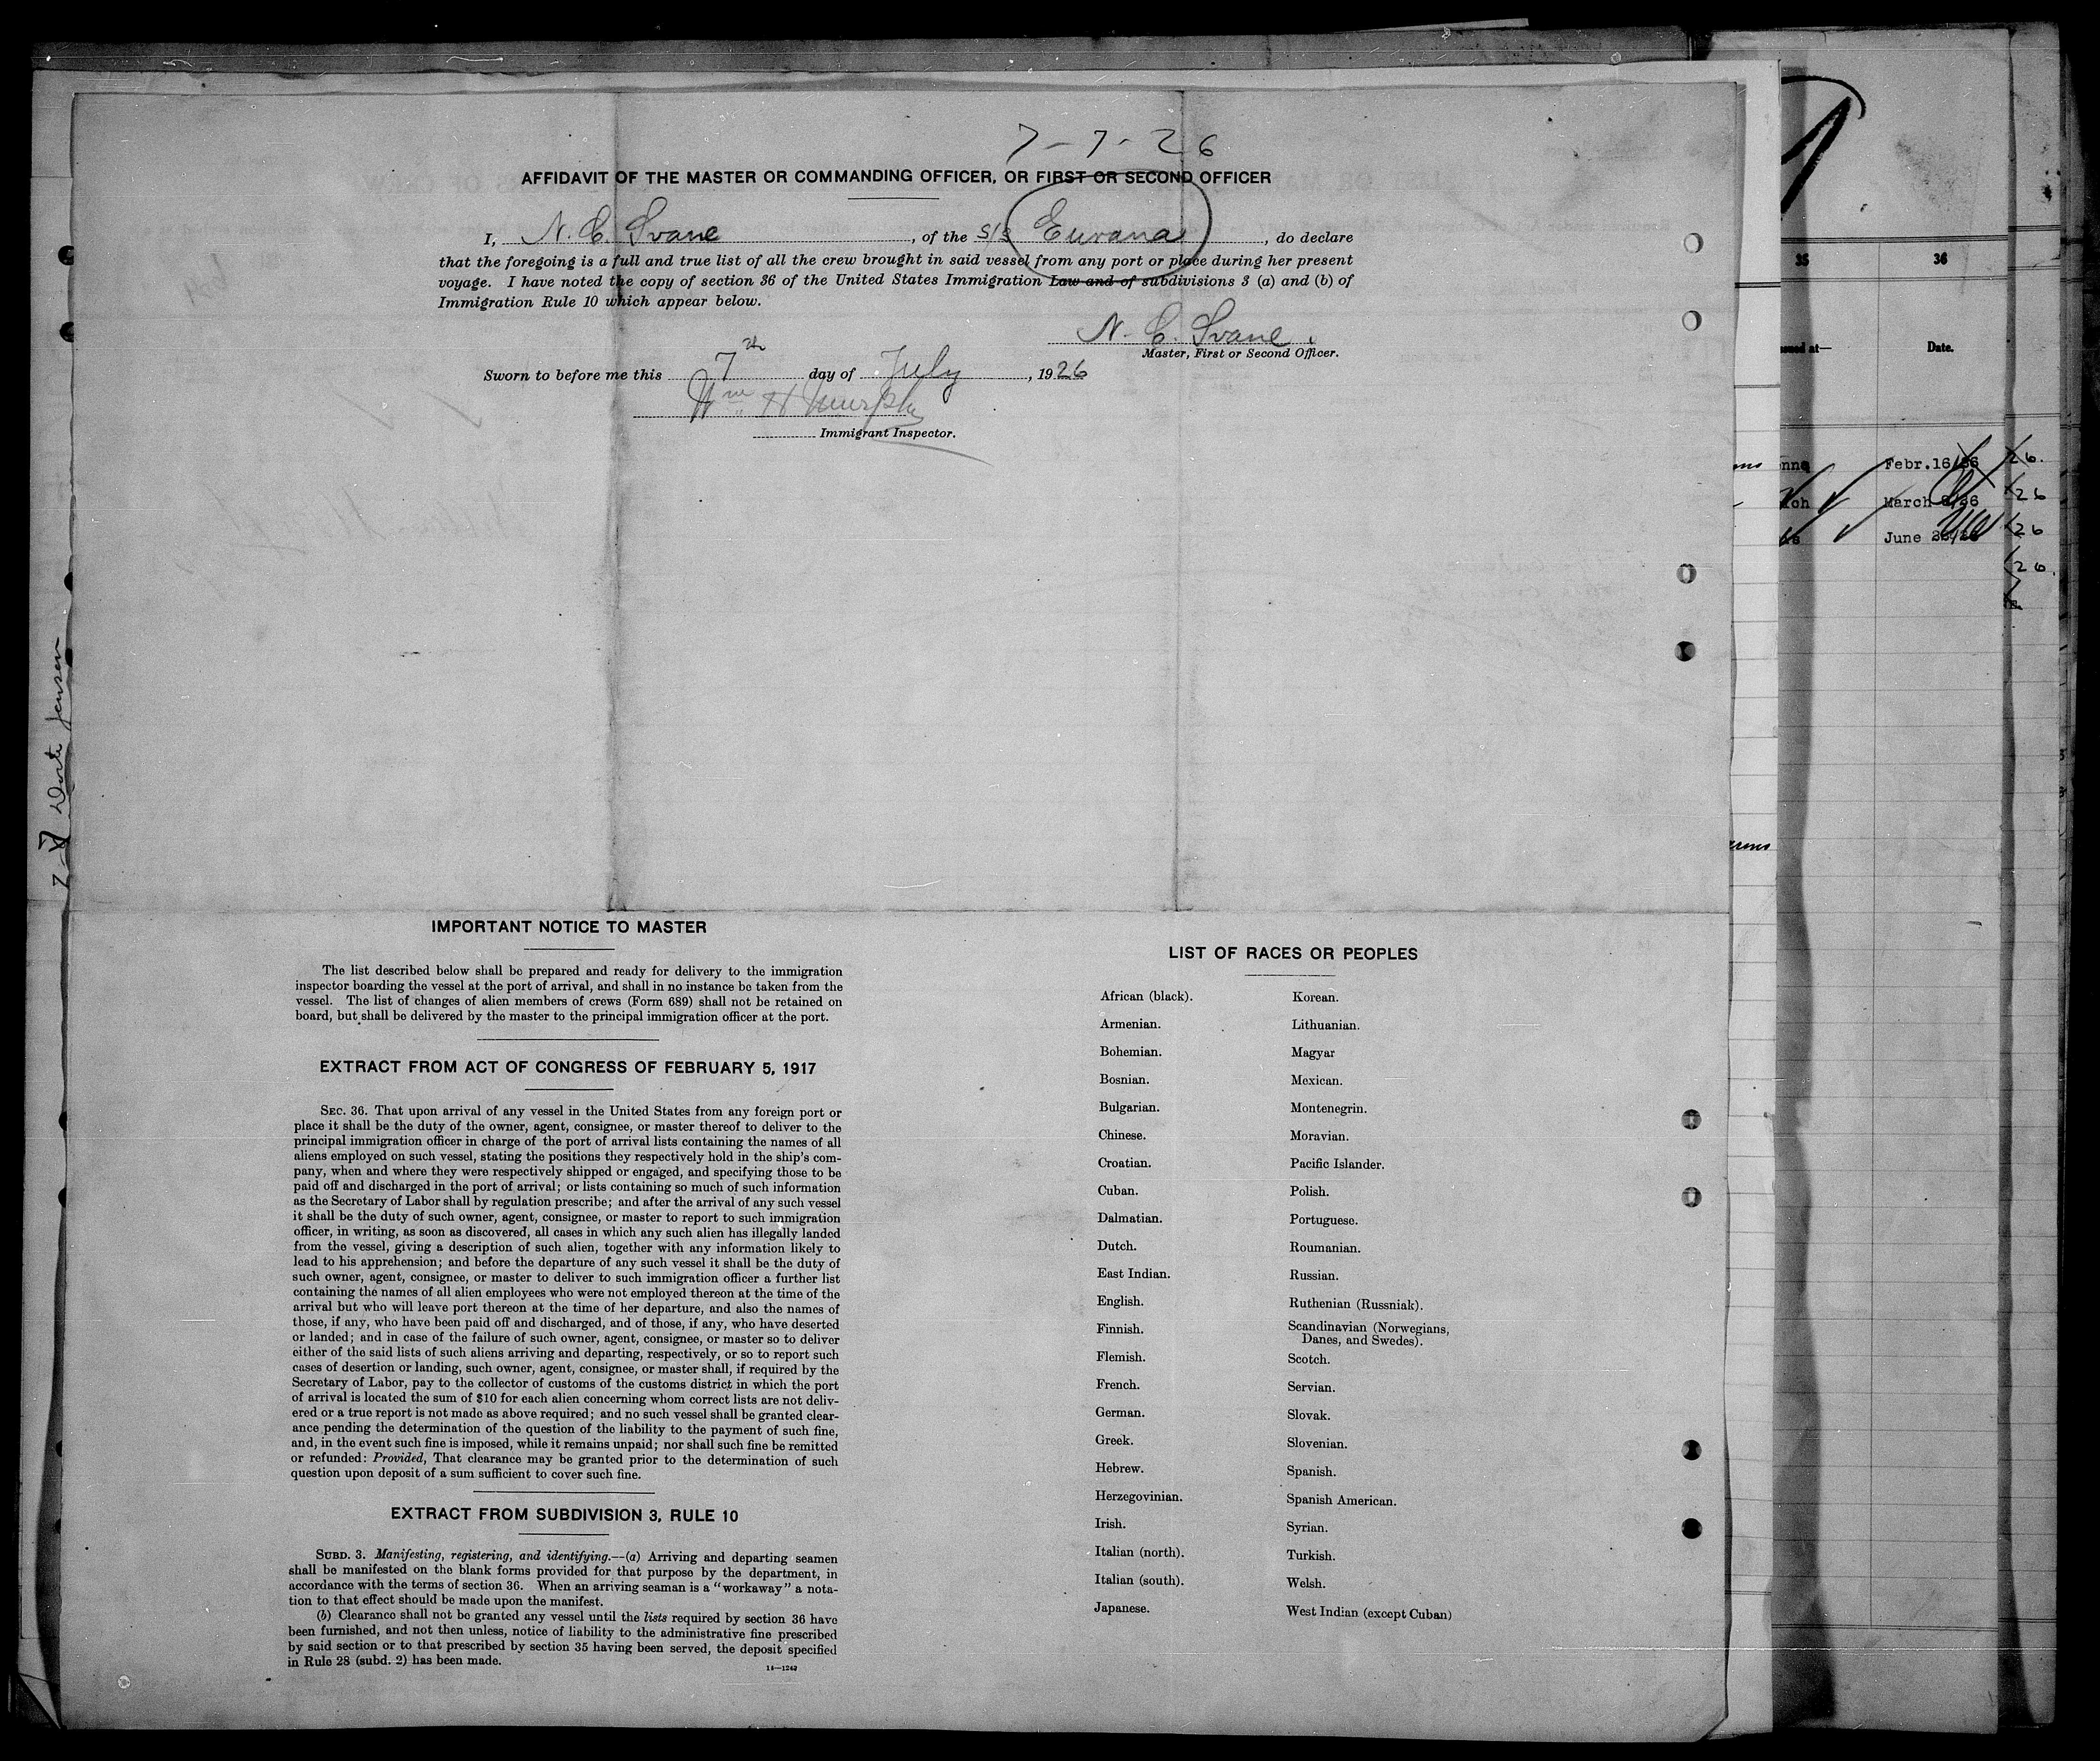 7-7-26
AFFIDAVIT OF THE MASTER OR COMMANDING OFFICER, OR FIRST OR SECOND OFFICER
I, N. C. Svane, of the S/S Eurana, do declare
that the foregoing is a full and true list of all the crew brought in said vessel from any port or place during her present
voyage. I have noted the copy of section 36 of the United States Immigration Law and of subdivisions 3 (a) and (b) of
Immigration Rule 10 which appear below.
N. C. Svane.
Master, First or Second Officer.
Sworn to before me this 7th day of July, 1926
Wm H Murphy
Immigrant Inspector.
IMPORTANT NOTICE TO MASTER
The list described below shall be prepared and ready for delivery to the immigration
inspector boarding the vessel at the port of arrival, and shall in no instance be taken from the
vessel. The list of changes of alien members of crews (Form 689) shall not be retained on
board, but shall be delivered by the master to the principal immigration officer at the port.
EXTRACT FROM ACT OF CONGRESS OF FEBRUARY 5, 1917
SEC. 36. That upon arrival of any vessel in the United States from any foreign port or
place it shall be the duty of the owner, agent, consignee, or master thereof to deliver to the
principal immigration officer in charge of the port of arrival lists containing the names of all
aliens employed on such vessel, stating the positions they respectively hold in the ship's com-
pany, when and where they were respectively shipped or engaged, and specifying those to be
paid off and discharged in the port of arrival; or lists containing so much of such information
as the Secretary of Labor shall by regulation prescribe; and after the arrival of any such vessel
it shall be the duty of such owner, agent, consignee, or master to report to such immigration
officer, in writing, as soon as discovered, all cases in which any such alien has illegally landed
from the vessel, giving a description of such alien, together with any information likely to
lead to his apprehension; and before the departure of any such vessel it shall be the duty of
such owner, agent, consignee, or master to deliver to such immigration officer a further list
containing the names of all alien employees who were not employed thereon at the time of the
arrival but who will leave port thereon at the time of her departure, and also the names of
those, if any, who have been paid off and discharged, and of those, if any, who have deserted
or landed; and in case of the failure of such owner, agent, consignee, or master so to deliver
either of the said lists of such aliens arriving and departing, respectively, or so to report such
cases of desertion or landing, such owner, agent, consignee, or master shall, if required by the
Secretary of Labor, pay to the collector of customs of the customs district in which the port
of arrival is located the sum of $10 for each alien concerning whom correct lists are not deliv-
ered or a true report is not made as above required; and no such vessel shall be granted clear-
ance pending the determination of the question of the liability to the payment of such fine,
and, in the event such fine is imposed, while it remains unpaid; nor shall such fine be remitted
or refunded: Provided, That clearance may be granted prior to the determination of such
question upon deposit of a sum sufficient to cover such fine.
EXTRACT FROM SUBDIVISION 3, RULE 10
SUBD. 3. Manifesting, registering, and identifying.—(a) Arriving and departing seamen
shall be manifested on the blank forms provided for that purpose by the department, in
accordance with the terms of section 36. When an arriving seaman is a "workaway" a nota-
tion to that effect should be made upon the manifest.
(b) Clearance shall not be granted any vessel until the lists required by section 36 have
been furnished, and not then unless, notice of liability to the administrative fine prescribed
by said section or to that prescribed by section 35 having been served, the deposit specified
in Rule 28 (subd. 2) has been made.
LIST OF RACES OR PEOPLES
African (black).
Armenian.
Bohemian.
Bosnian.
Bulgarian.
Chinese.
Croatian.
Cuban.
Dalmatian.
Dutch.
East Indian.
English.
Finnish.
Flemish.
French.
German.
Greek.
Hebrew.
Herzegovinian.
Irish.
Italian (north).
Italian (south).
Japanese.
Korean.
Lithuanian.
Magyar
Mexican.
Montenegrin.
Moravian.
Pacific Islander.
Polish.
Portuguese.
Roumanian.
Russian.
Ruthenian (Russniak).
Scandinavian (Norwegians,
Danes, and Swedes).
Scotch.
Servian.
Slovak.
Slovenian.
Spanish.
Spanish American.
Syrian.
Turkish.
Welsh.
West Indian (except Cuban)
35
36
at—
Date.
Febr.16
March
June
26.
26
26
26.
Jensen